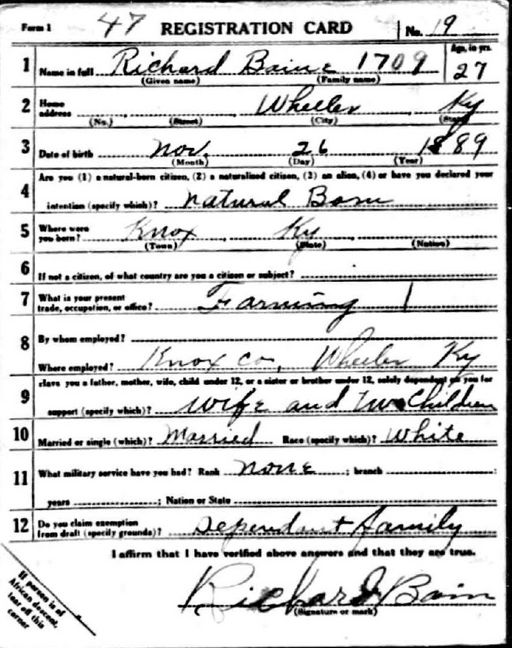 Form 1 47 REGISTRATION CARD No. 19
1 Name in full Richard Baine 1709 Age, in yrs. 27
(Given name) (Family name)
2 Home address Wheeler Ky
(No.) (Street) (City) (State)
3 Date of birth Nov. 26 1889
(Month) (Day) (Year)
4 Are you (1) a natural-born citizen, (2) a naturalized citizen, (3) an alien, (4) or have you declared your
intention (specify which)? Natural Born
5 Where were you born? Knox Ky
(Town) (State) (Nation)
6 If not a citizen, of what country are you a citizen or subject?
7 What is your present trade, occupation, or office? Farming
8 By whom employed?
Where employed? Knox co, Wheeler Ky
9 Have you a father, mother, wife, child under 12, or a sister or brother under 12, solely dependent on you for
support (specify which)? Wife and Two Children
10 Married or single (which)? Married Race (specify which)? White
11 What military service have you had? Rank None ; branch
years ; Nation or State
12 Do you claim exemption from draft (specify grounds)? Dependent family
I affirm that I have verified above answers and that they are true.
Richard Bain
(Signature or mark)
If person is of
African descent,
tear off this
corner